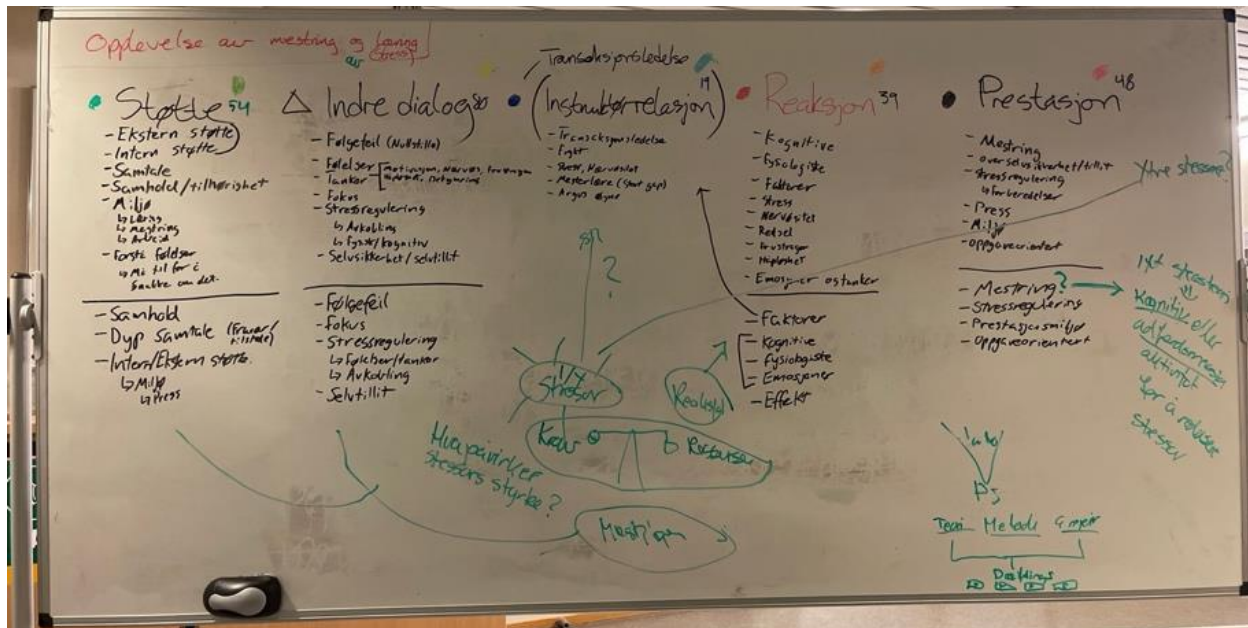 Opplevelse av mestring og læring
av stress
Støtte 54
- Ekstern støtte
- Intern støtte
- Samtale
- Samhold/tilhørighet
- Miljø
↳ Læring
↳ Mestring
↳ Arbeid
- Forstå følelser
↳ Må til for å
snakke om det.
- Samhold
- Dyp samtale (Fravær/
tilstede)
- Intern/Ekstern støtte.
↳ Miljø
↳ Press
Indre dialog
- Følgefeil (Nullstille)
- Følelser
Tanker
- Fokus
- Stressregulering
↳ Avkobling
↳ Fysisk/kognitiv
- Selvsikkerhet/selvtillit
- Følgefeil
- Fokus
- Stressregulering
↳ Følelser/tanker
↳ Avkobling
- Selvtillit
Transaksjonsledelse
(Instruktørrelasjon) 19
- Transaksjonsledelse
- Frykt
- Stress, Nervøsitet
- Mesterlære (stort gap)
- Argus øyne
Reaksjon 39
- Kognitive
- Fysiologiske
- Faktorer
- Stress
- Nervøsitet
- Redsel
- Frustrasjon
- Håpløshet
- Emosjoner og tanker
- Faktorer
- Kognitive
- Fysiologiske
- Emosjoner
- Effekt
Prestasjon 48
- Mestring
- Overselvsikkerhet/tillit
- Stressregulering
↳ Forberedelser
- Press
- Miljø
- Oppgaveorientert
- Mestring?
- Stressregulering
- Prestasjonsmiljø
- Oppgaveorientert
Ytre stressor?
?
I/Y
Stressor
Krav
Ressurser
Reaksjon
Hva påvirker
stressors styrke?
Kognitiv eller
adferdsmessig
aktivitet
for å redusere
stressor
Teori Metode Empiri